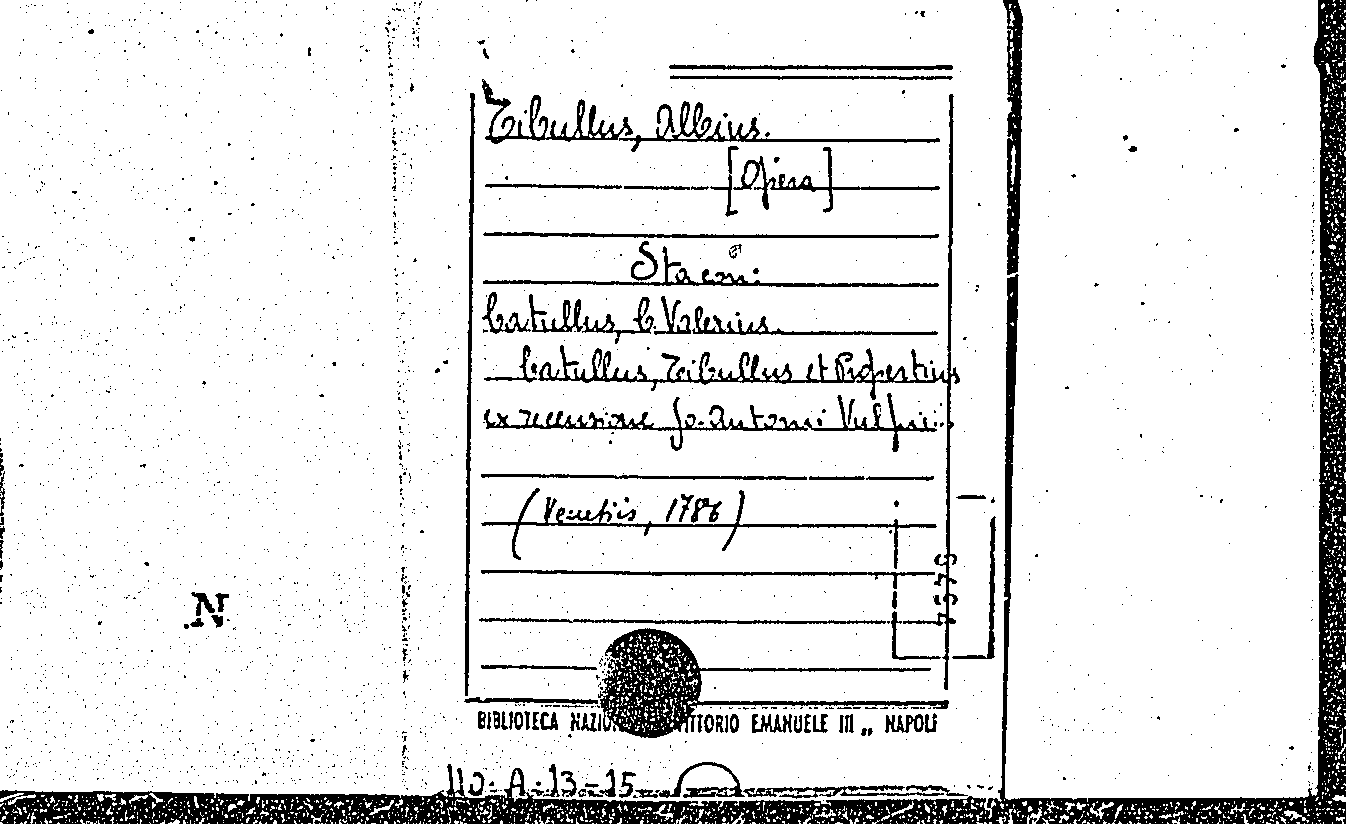 Tibullus, Albius.
[Opera]
Sta con:
Catullus, C. Valerius.
Catullus, Tibullus et Propertius
ex recensione Jo. Antoni Vulpii
(Venetiis, 1786)
7575
BIBLIOTECA VITTORIO EMANUELE III „ NAPOLI
110. A. 13-15
N